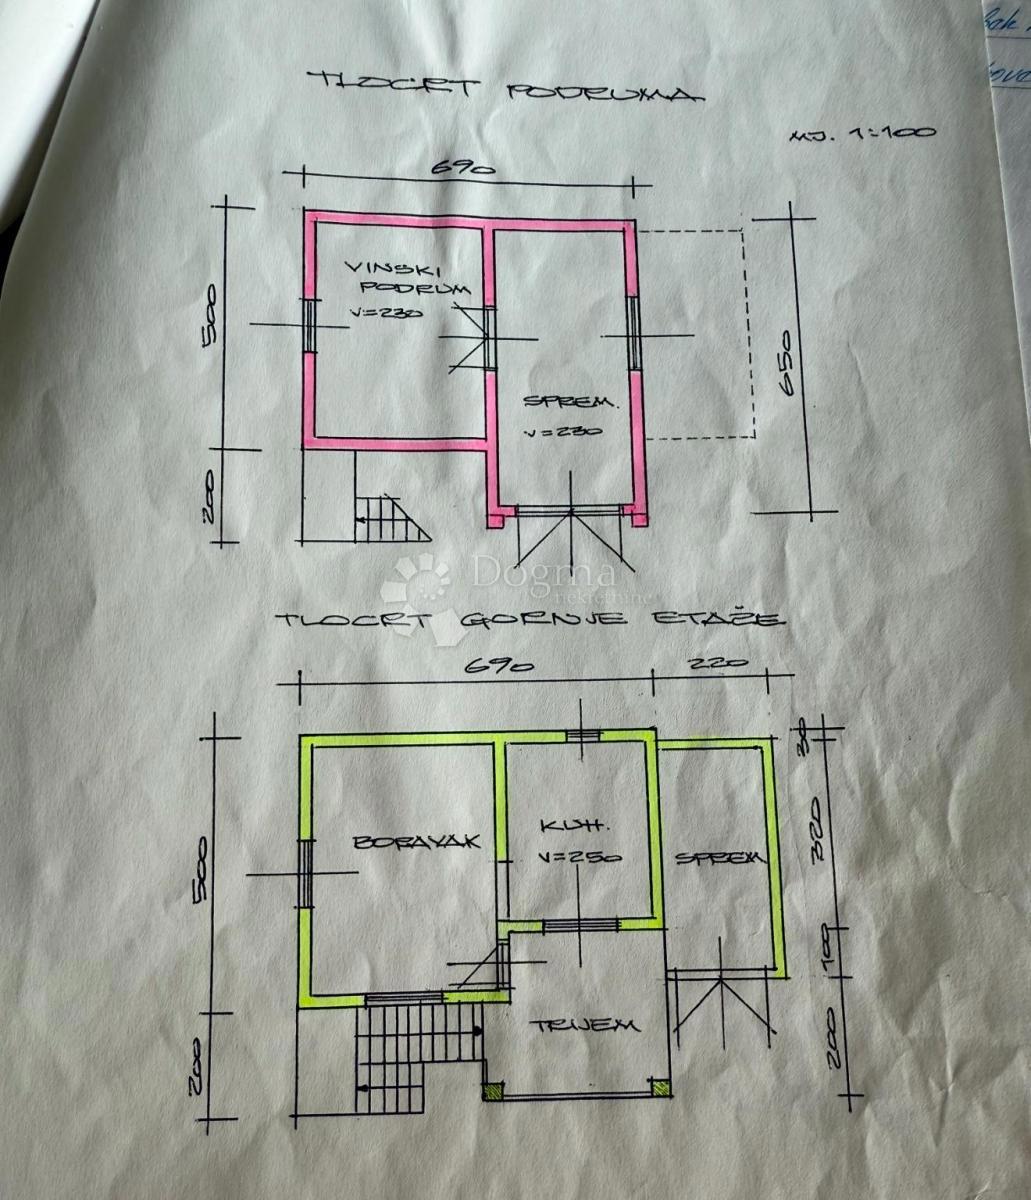 TLOCRT PODRUMA
MJ. 1:100
690
500
200
650
VINSKI
PODRUM
V=230
SPREM.
V=230
Dogma
nekretnine
TLOCRT GORNJE ETAŽE
690
220
500
200
30
320
100
200
BORAVAK
KUH.
V=250
SPREM
TRIJEM